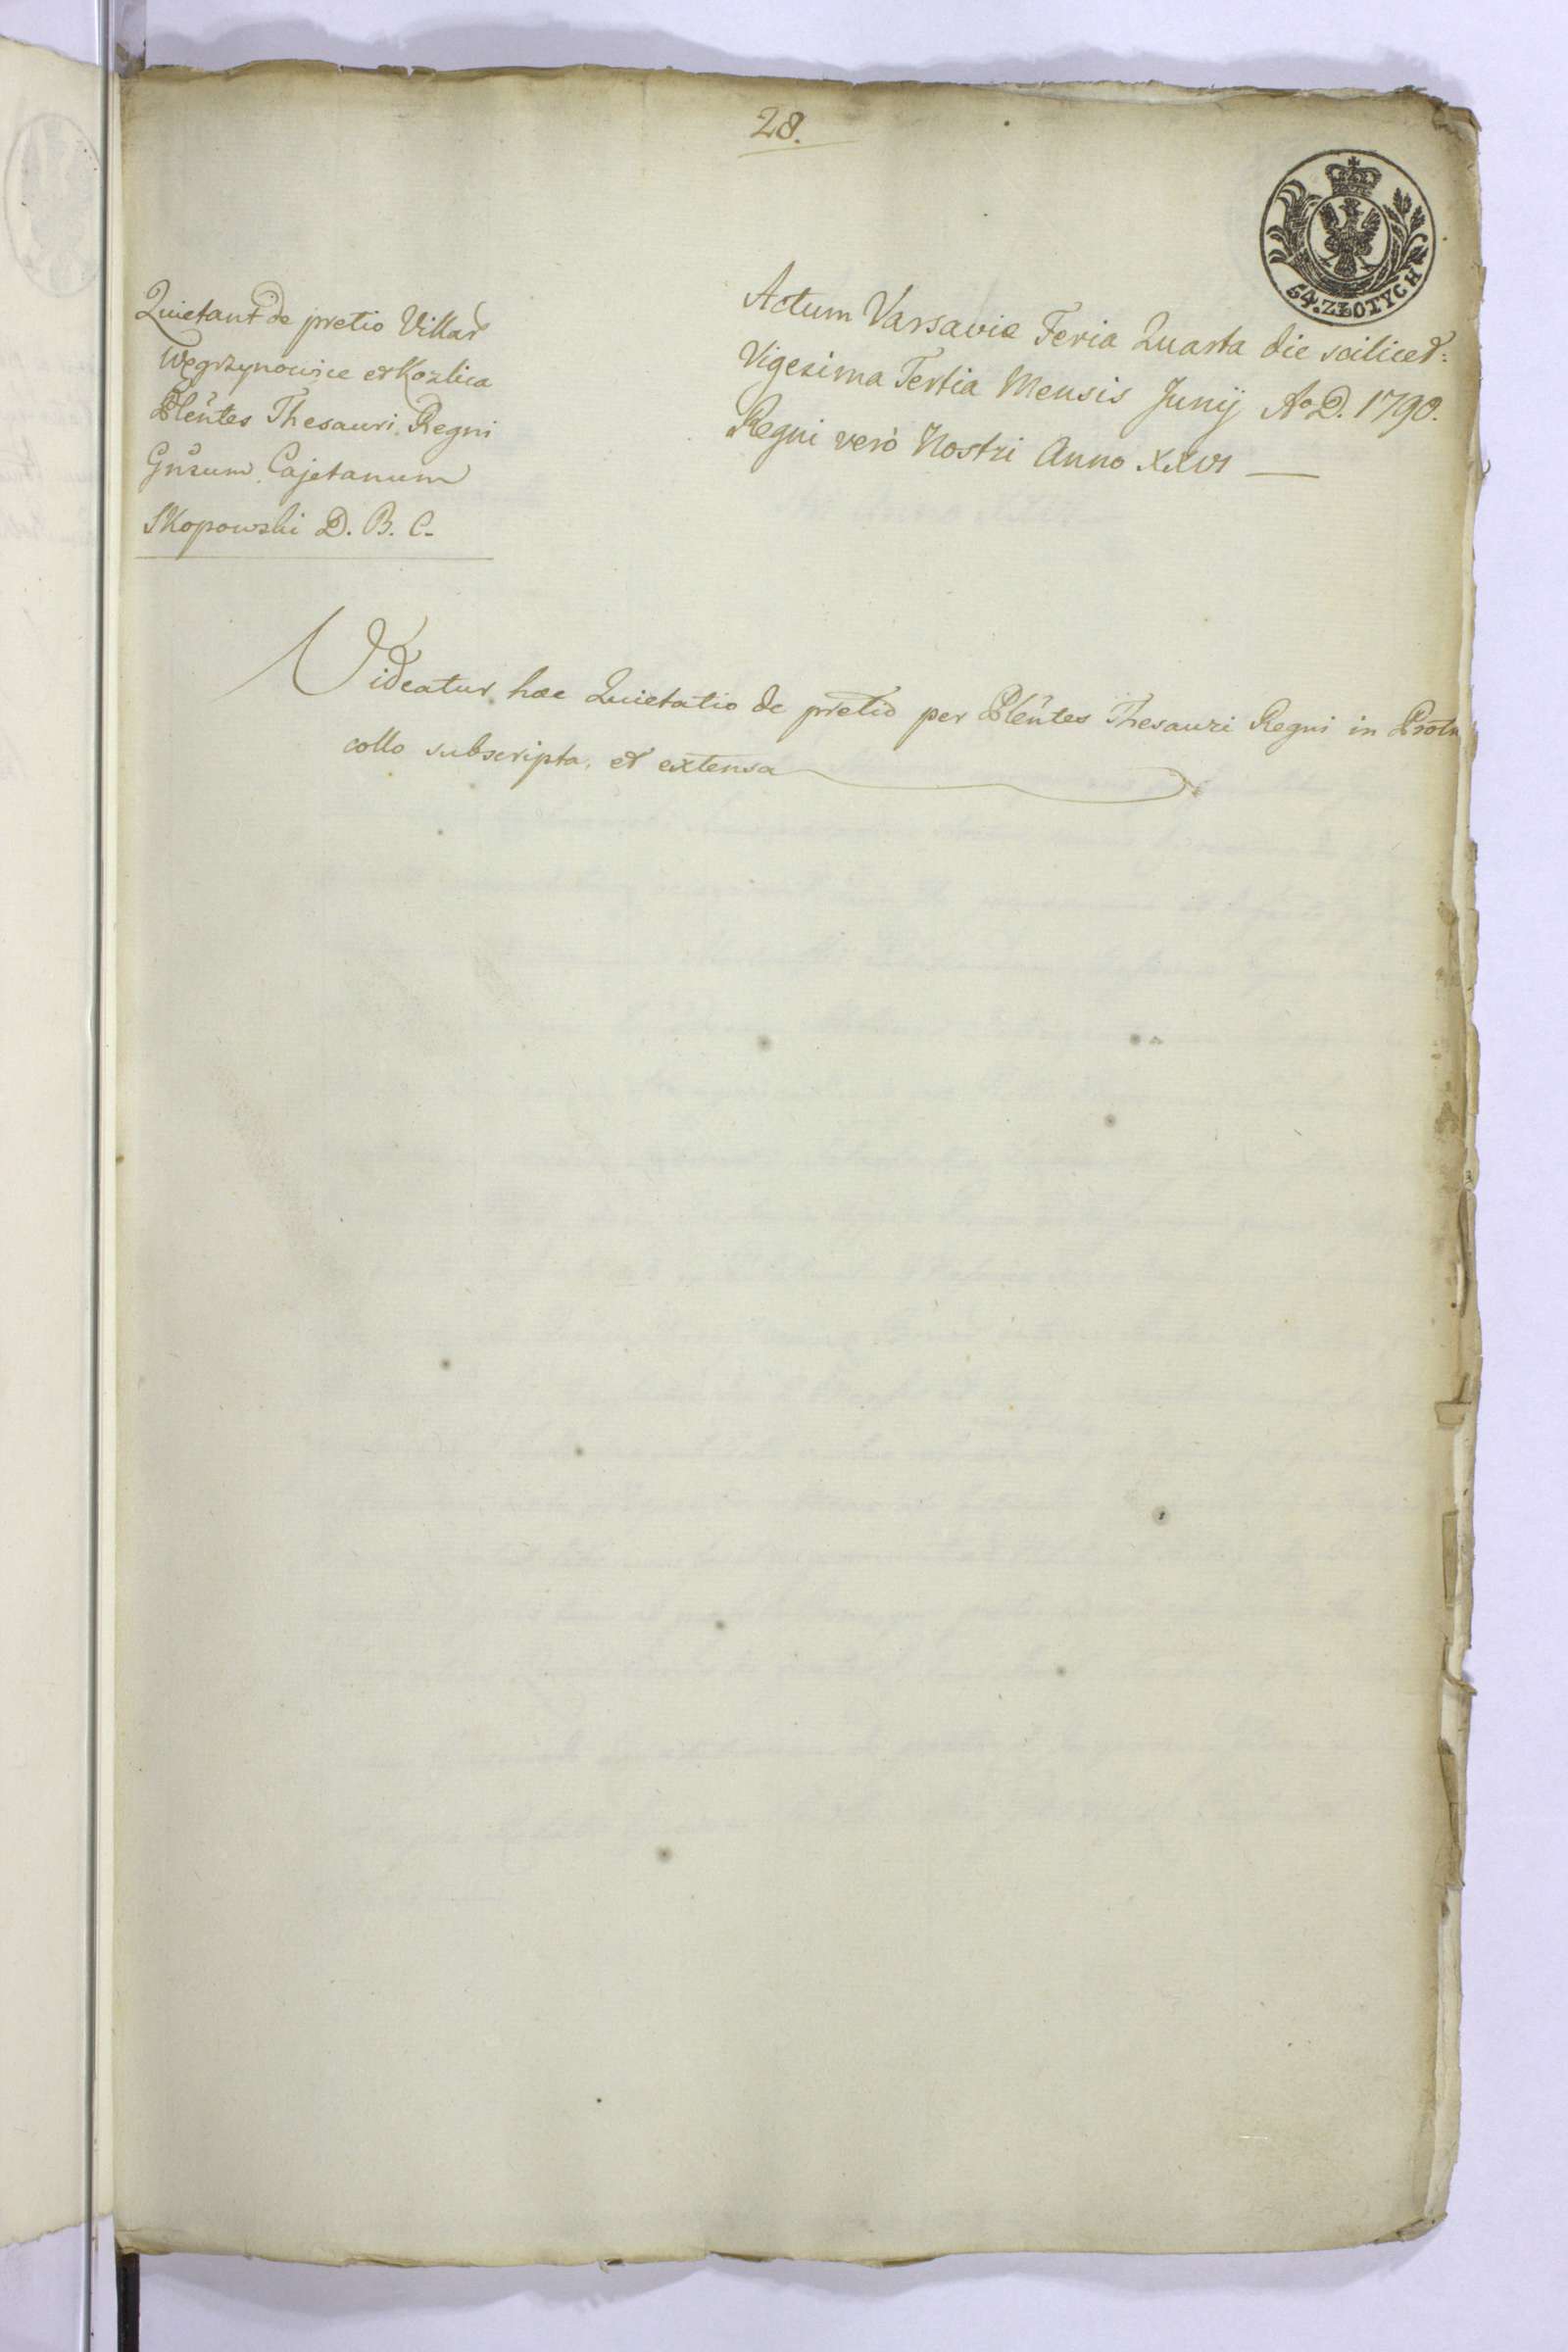 28.
54. ZŁOTYCH
Quietant de pretio Villar
Węgrzynowice et Kozlica
Plentes Thesauri Regni
Gnsum Cajetanum
Skopowski D. B. C.
Actum Varsavia Feria Quarta die scilicet:
Vigesima Tertia Mensis Junij Ao D. 1790.
Regni verò Nostri Anno XXVI
Videatur hæc Quietatio de pretio per Plentes Thesauri Regni in Proto
collo subscripta, et extensa